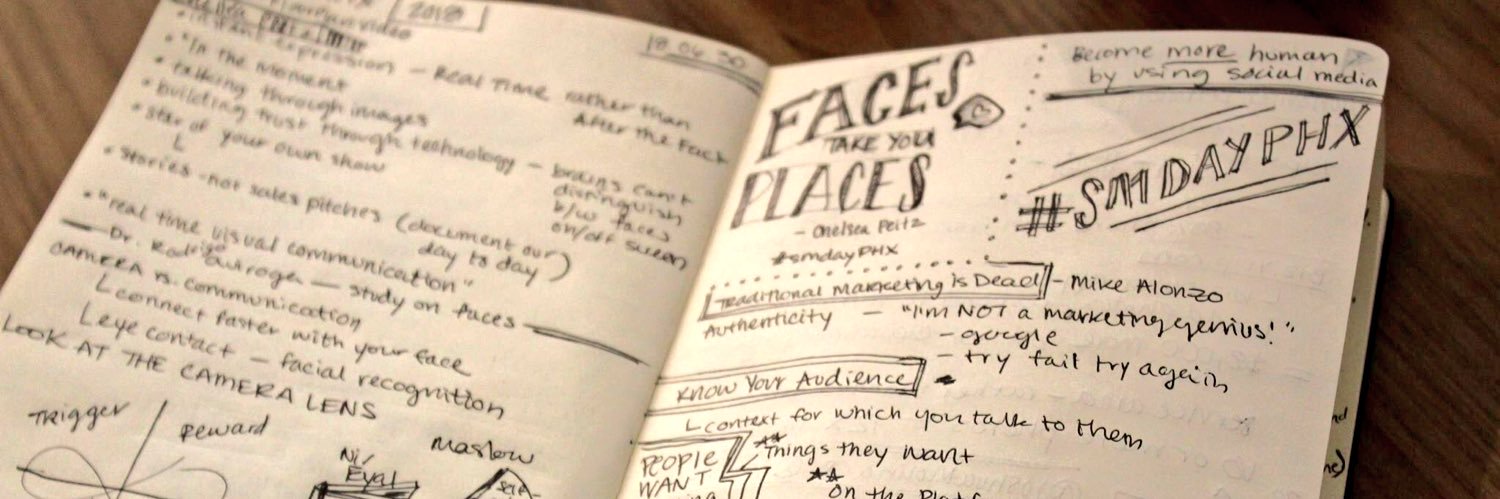 2018
video
18.04.30
expression - Real Time rather than
After the Fact
• "In the moment
• talking through images
• building trust through technology - brains can't
distinguish
b/w faces
on/off screen
• star of your own show
• Stories - not sales pitches (document our
day to day)
• "real time visual communication"
— Dr. Rodrigo Quiroga — study on faces
CAMERA vs. communication
connect faster with your face
eye contact - facial recognition
LOOK AT THE CAMERA LENS
Trigger
Reward
Maslow
FACES
TAKE YOU
PLACES
- Chelsea Peitz
#smdayPHX
Become more human
by using social media
#SMDAYPHX
Traditional Marketing is Dead - Mike Alonzo
Authenticity - "I'm NOT a marketing genius!"
- google
- try fail try again
Know Your Audience
context for which you talk to them
PEOPLE
WANT
Things they want
on the